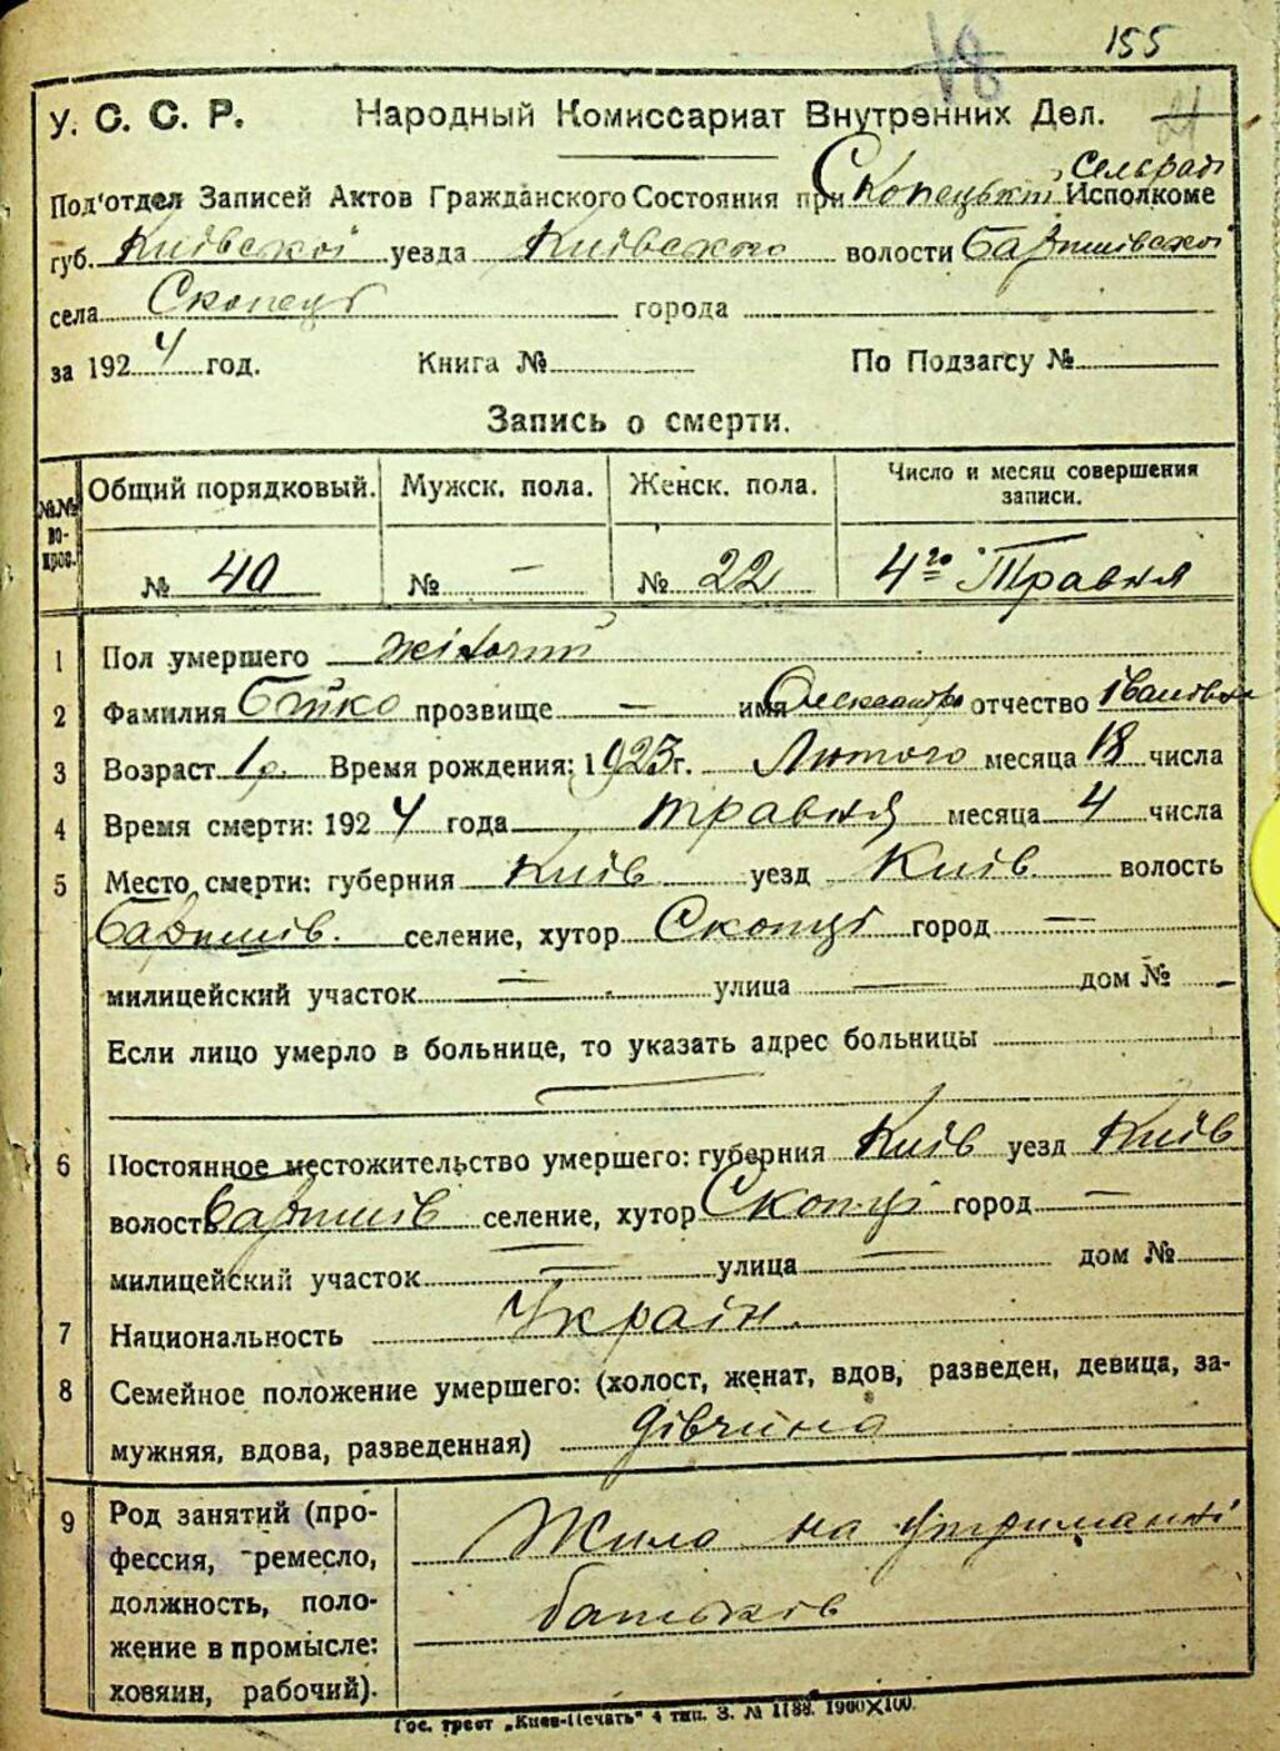 155
18
21
У. С. С. Р. Народный Комиссариат Внутренних Дел.
Сельраді
Под'отдел Записей Актов Гражданского Состояния при Скопецькій Исполкоме
губ. Київскої уезда Київского волости Баришівскої
села Скопці города
за 1924 год. Книга № По Подзагсу №
Запись о смерти.
№№ во-прос. Общий порядковый. Мужск. пола. Женск. пола. Число и месяц совершения записи.
№ 40 № — № 22 4го Травня
1 Пол умершего жіночий
2 Фамилия Бойко прозвище — имя Олександра отчество Івановна
3 Возраст 1 р. Время рождения: 1923 г. Лютого месяца 18 числа
4 Время смерти: 1924 года травня месяца 4 числа
5 Место смерти: губерния Київ уезд Київ. волость
Баришів. селение, хутор Скопці город —
милицейский участок — улица — дом № —
Если лицо умерло в больнице, то указать адрес больницы
—
6 Постоянное местожительство умершего: губерния Київ уезд Київ
волость Баришів селение, хутор Скопці город —
милицейский участок — улица — дом №
7 Национальность Україн.
8 Семейное положение умершего: (холост, женат, вдов, разведен, девица, за-
мужняя, вдова, разведенная) дівчина
9 Род занятий (про- Жила на утриманні
фессия, ремесло,
должность, поло- батьків
жение в промысле:
хозяин, рабочий).
Гос. трест „Киев-Печать" 4 тип. З. № 1188. 1900X100.